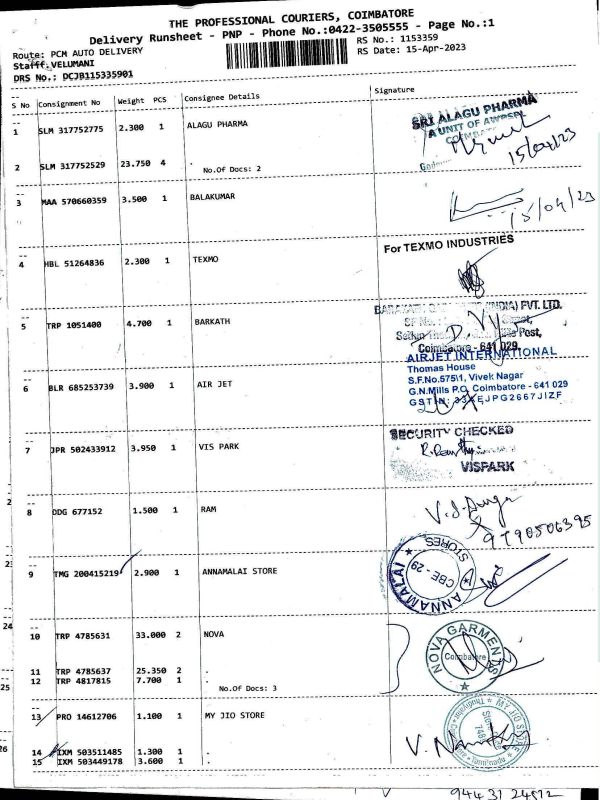 THE PROFESSIONAL COURIERS, COIMBATORE
Delivery Runsheet - PNP - Phone No.:0422-3505555 - Page No.:1
Route: PCM AUTO DELIVERY
RS No.: 1153359
Stafff.VELUMANI
RS Date: 15-Apr-2023
DRS No.: DCJB115335901
S No Consignment No Weight PCS Consignee Details Signature
1 SLM 317752775 2.300 1 ALAGU PHARMA
SRI ALAGU PHARMA
A UNIT OF
15/04/23
2 SLM 317752529 23.750 4 .
No.Of Docs: 2
3 MAA 570660359 3.500 1 BALAKUMAR
15/04/23
4 HBL 51264836 2.300 1 TEXMO
For TEXMO INDUSTRIES
5 TRP 1051400 4.700 1 BARKATH
(INDIA) PVT. LTD.
Post,
Coimbatore - 641 029.
6 BLR 685253739 3.900 1 AIR JET
AIRJET INTERNATIONAL
Thomas House
S.F.No.575\1, Vivek Nagar
G.N.Mills P.O, Coimbatore - 641 029
7 JPR 502433912 3.950 1 VIS PARK
SECURITY CHECKED
VISPARK
8 DDG 677152 1.500 1 RAM
9790506395
9 TMG 200415219 2.900 1 ANNAMALAI STORE
ANNAMALAI STORES
CBE - 29
10 TRP 4785631 33.000 2 NOVA
NOVA GARMENTS
Coimbatore
11 TRP 4785637 25.350 2 .
12 TRP 4817815 7.700 1 .
No.Of Docs: 3
13 PRO 14612706 1.100 1 MY JIO STORE
MY JIO STORE
14 IXM 503511485 1.300 1 .
15 IXM 503449178 3.600 1 .